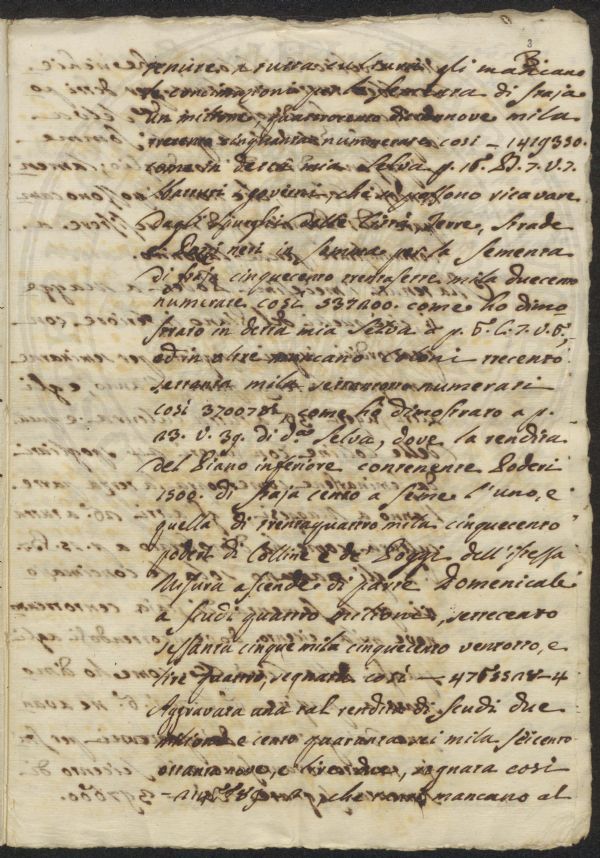 3
tenuire, a tutta cultura gli mancano
le concimazioni per la sementa di staja
un milione quattrocento diciannove mila
trecento cinquanta numerate così – 1419350.
come in detta mia Selva p. 16. 7. v. 7.
governi, che si possono ricavare
dagli Spurghi delle Città, Terre, strade
e Pozzi neri in somma per la sementa
di staja cinquecento trentasette mila duecento
numerate così 537200. come ho dimo
strato in detta mia Selva p. 6. C. 7. v. 6,
ed in oltre mancano Coloni trecento
settanta mila numerati
così come hò dimostrato a p.
23. v. 39. di d.ª Selva, dove la rendita
del Piano inferiore contenente Poderi
1500. di staja cento a seme l'uno, e
quella di trentaquattro mila cinquecento
poderi di Colline e de Poggi dell'istessa
Misura ascende di parte Domenicale
a scudi quattro milioni, settecento
sessanta cinque mila cinquecento ventotto, e
lire quattro, segnata così – 4765528–4
Aggravata una tal rendita di Scudi due
milioni e cento quaranta sei mila seicento
ottantanove, e lire due, segnata così
che mancano al